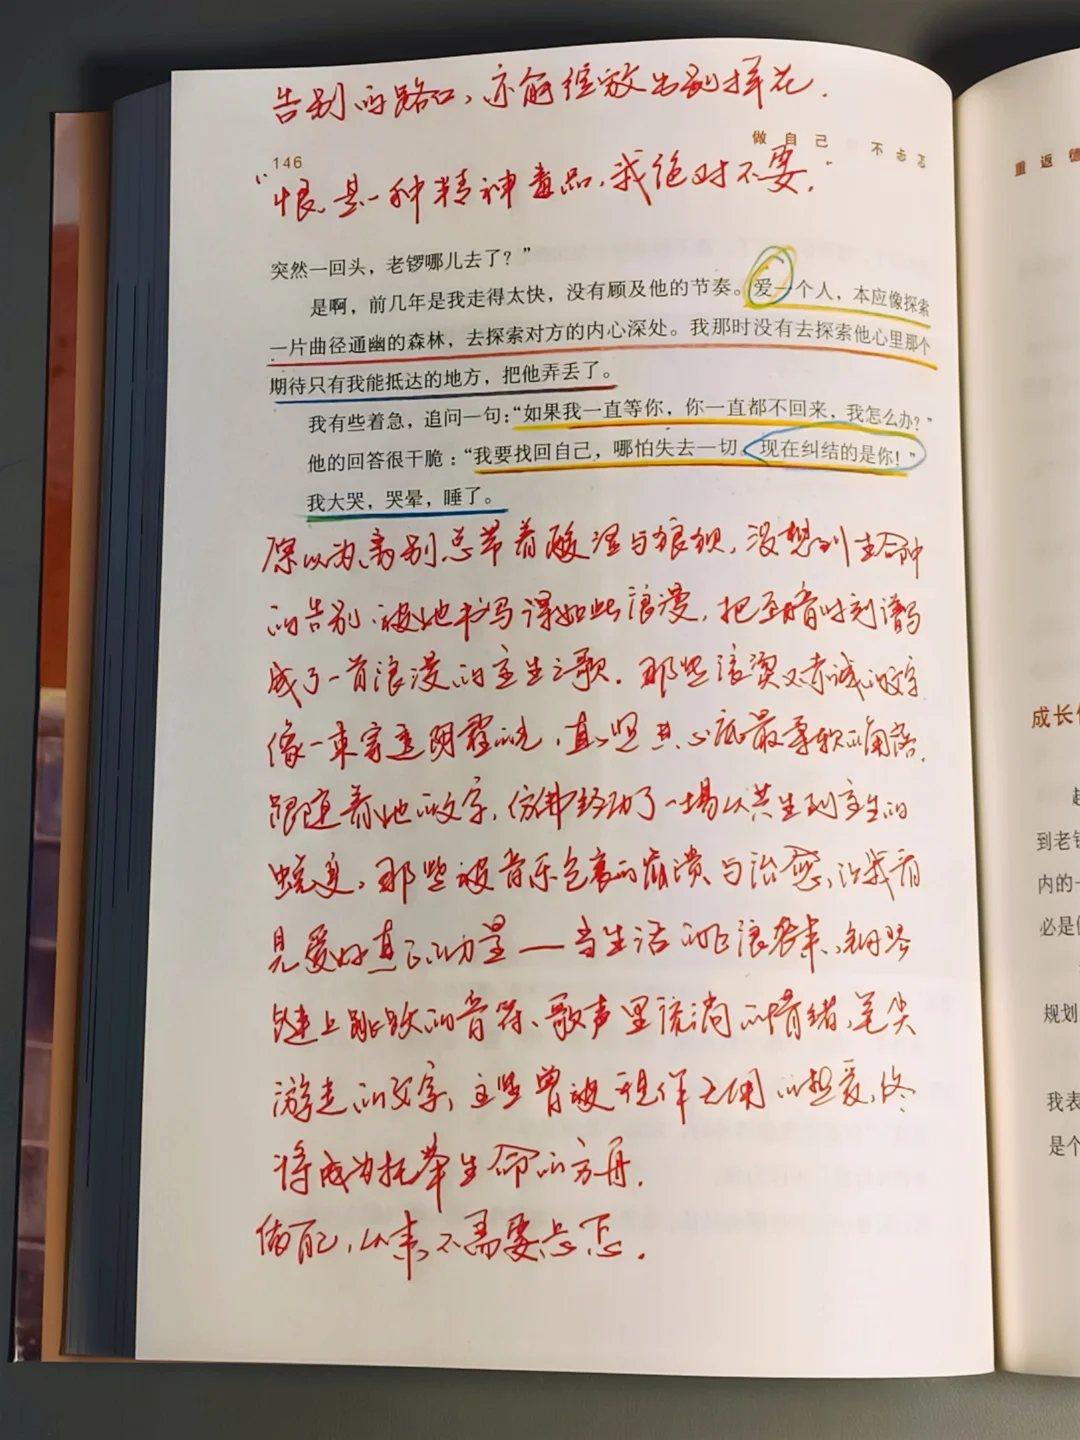 告别的路口，亦能绽放出别样花.
146
做自己 不忐忑
“恨是一种精神毒品，我绝对不要.”
突然一回头，老锣哪儿去了？”
是啊，前几年是我走得太快，没有顾及他的节奏。爱一个人，本应像探索
一片曲径通幽的森林，去探索对方的内心深处。我那时没有去探索他心里那个
期待只有我能抵达的地方，把他弄丢了。
我有些着急，追问一句：“如果我一直等你，你一直都不回来，我怎么办？”
他的回答很干脆：“我要找回自己，哪怕失去一切。现在纠结的是你！”
我大哭，哭晕，睡了。
原以为离别总带着酸涩与狼狈，没想到生命种
的告别，被她书写得如此浪漫，把至暗时刻谱写
成了一首浪漫的主生之歌. 那些滚烫又赤诚的文字
像一束穿透阴霾的光，直照其心底最柔软的角落.
跟随着她的文字，仿佛经历了一场从共生到主生的
蜕变，那些被音乐包裹的崩溃与治愈，让我看
见爱好真正的力量——当生活的巨浪袭来，钢琴
键上跳跃的音符、歌声里流淌的情绪，笔尖
游走的文字，这些曾被视作无用的热爱，终
将成为托举生命的方舟.
做自己，从来不需要忐忑.
重返德
成长
起
到老锣
内的一
必是
规划
我表
是个